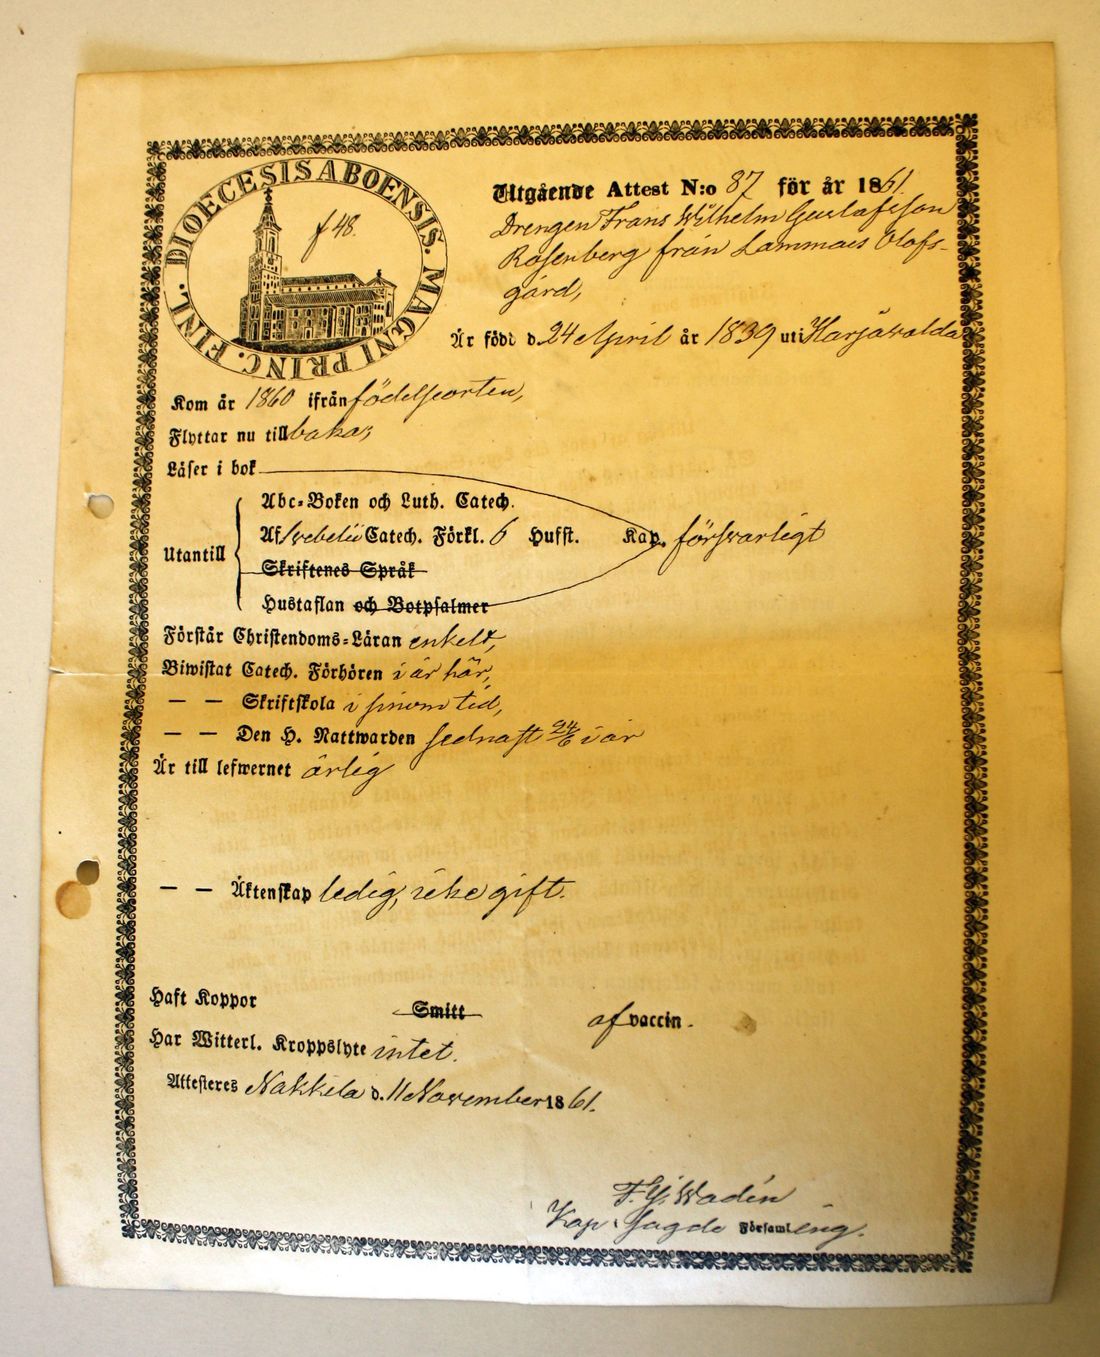 DIOECESIS ABOENSIS. MAGNI PRINC. FINL.
f 48.
Utgående Attest N:o 87 för år 1861.
Drengen Frans Wilhelm Gustafsson
Rosenberg från Lammais Olofs-
gård,
Är född d. 24 April år 1839 uti Harjawalda
Kom år 1860 ifrån födelseorten,
Flyttar nu till baka;
Läser i bok
Utantill
Abc-Boken och Luth. Catech.
Af Svebelii Catech. Förkl. 6 Hufst. Kap. försvarligt
Skriftenes Språk
Hustaflan och Botpsalmer
Förstår Christendoms-Läran enkelt,
Biwistat Catech. Förhören i år här,
— — Skriftskola i sinom tid,
— — Den H. Nattwarden sednast 24/6 i år
Är till lefwernet ärlig
— — Äktenskap ledig, icke gift.
Haft Koppor Smitt af vaccin.
Har Witterl. Kroppslyte intet.
Attesteres Nakkila d. 11 November 1861.
Wadén
Kap. i sagde Församling.